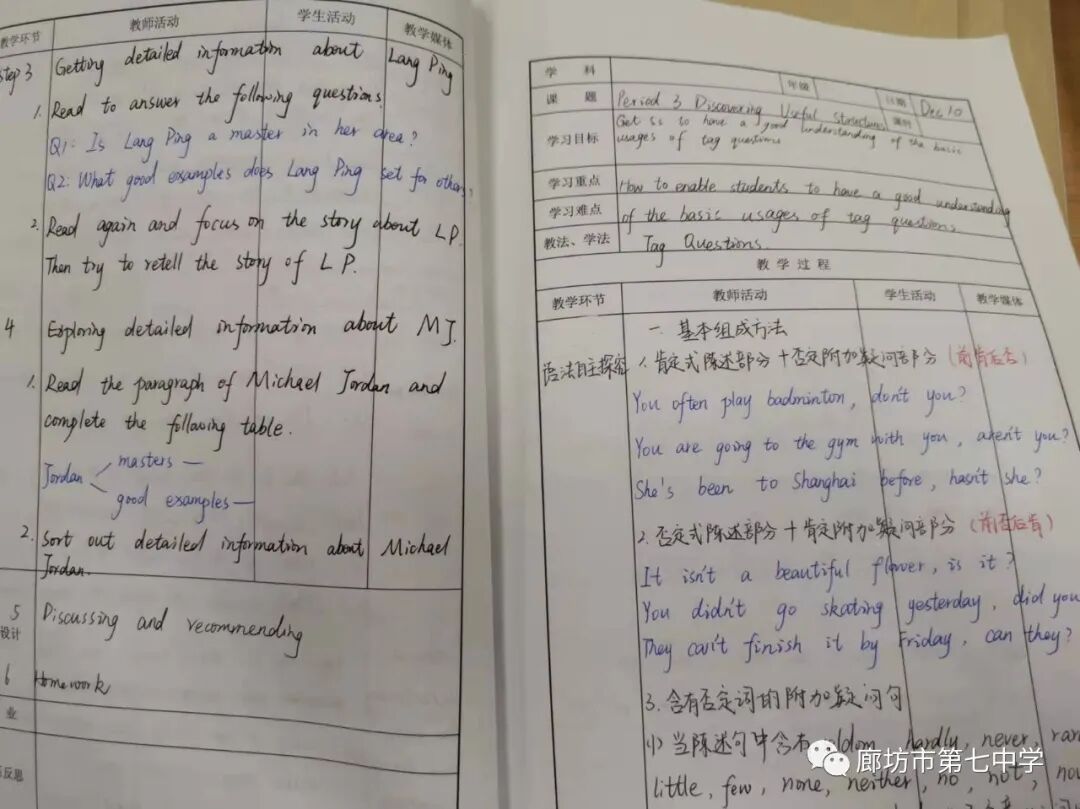 教学环节 教师活动 学生活动 教学媒体
step 3 Getting detailed information about Lang Ping
1. Read to answer the following questions
Q1: Is Lang Ping a master in her area?
Q2: What good examples does Lang Ping set for others?
2. Read again and focus on the story about LP.
Then try to retell the story of LP.
4 Exploring detailed information about MJ.
1. Read the paragraph of Michael Jordan and
complete the following table.
Jordan
masters —
good examples —
2. Sort out detailed information about Michael
Jordan.
5 Discussing and recommending
设计
6 Homework
业
反思
学 科 年级 日期 Dec 10
课 题 Period 3 Discovering Useful Structures 课时
学习目标 Get Ss to have a good understanding of the basic
usages of tag questions
学习重点 How to enable students to have a good understanding
学习难点 of the basic usages of tag questions
教法、学法 Tag Questions.
教 学 过 程
教学环节 教师活动 学生活动 教学媒体
一. 基本组成方法
语法自主探究 1. 肯定式陈述部分+否定附加疑问部分 (前肯后否)
You often play badminton, don't you?
You are going to the gym with you, aren't you?
She's been to Shanghai before, hasn't she?
2. 否定式陈述部分+肯定附加疑问部分 (前否后肯)
It isn't a beautiful flower, is it?
You didn't go skating yesterday, did you
They can't finish it by Friday, can they?
3. 含有否定词的附加疑问句
(1) 当陈述句中含有 hardly, never,
little, few, none, neither, no, not,
廊坊市第七中学